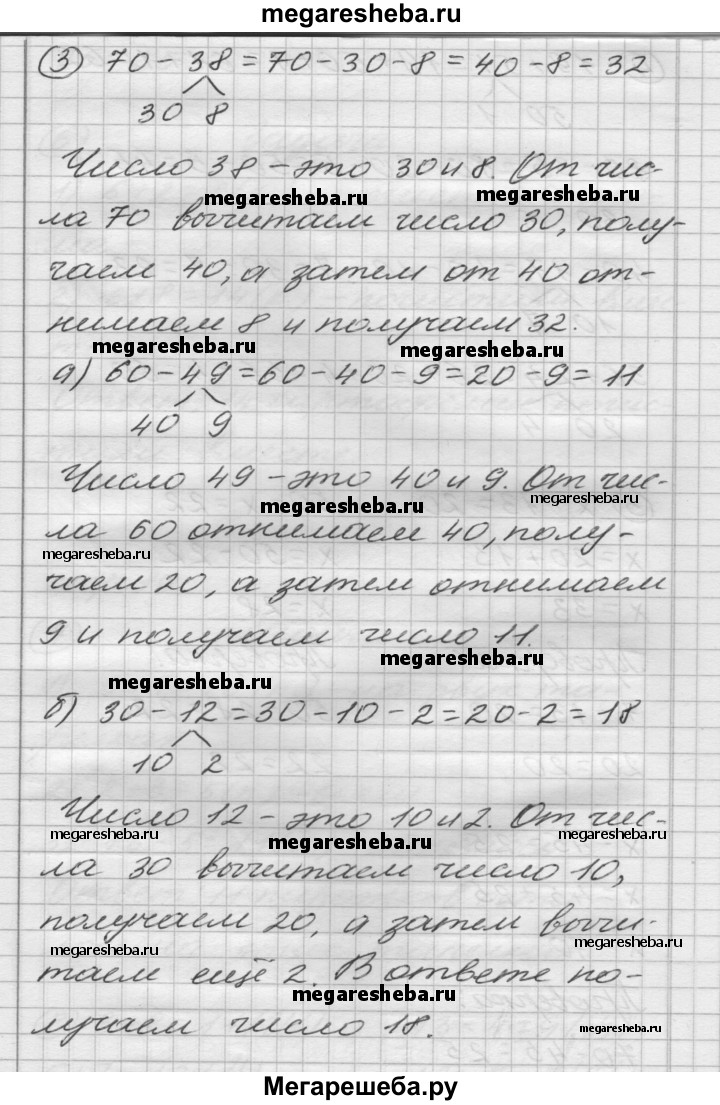 megaresheba.ru
3 70 - 38 = 70 - 30 - 8 = 40 - 8 = 32
30 8
Число 38 - это 30 и 8. От чис-
megaresheba.ru megaresheba.ru
ла 70 вычитаем число 30, полу-
чаем 40, а затем от 40 от-
нимаем 8 и получаем 32.
megaresheba.ru megaresheba.ru
а) 60 - 49 = 60 - 40 - 9 = 20 - 9 = 11
40 9
Число 49 - это 40 и 9. От чис-
megaresheba.ru megaresheba.ru
ла 60 отнимаем 40, полу-
megaresheba.ru
чаем 20, а затем отнимаем
9 и получаем число 11.
megaresheba.ru
megaresheba.ru
б) 30 - 12 = 30 - 10 - 2 = 20 - 2 = 18
10 2
Число 12 - это 10 и 2. От чис-
megaresheba.ru megaresheba.ru
ла 30 вычитаем число 10,
получаем 20, а затем вычи-
megaresheba.ru megaresheba.ru
таем ещё 2. В ответе по-
megaresheba.ru
лучаем число 18.
megaresheba.ru
Мегарешеба.ру